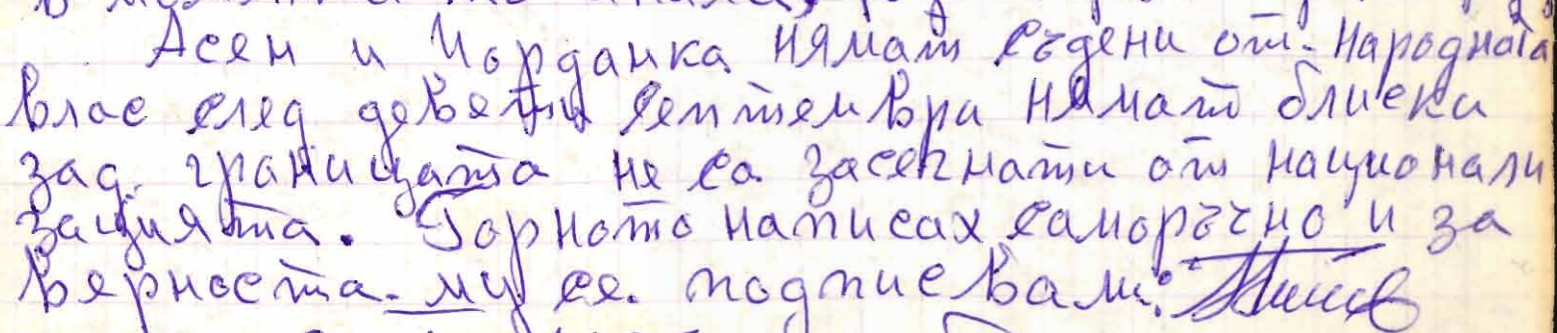 Асен и Йорданка нямат съдени от народната
влас след девяти септември нямат близки
зад границата не са засегнати от национали
зацията. Горното написах саморъчно и за
верността му се подписвам: